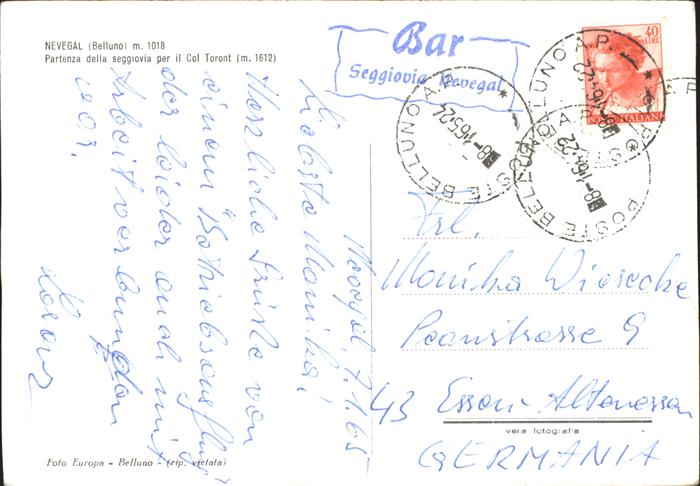 NEVEGAL (Belluno) m. 1018
Partenza della seggiovia per il Col Toront (m. 1612)
Bar
Seggiovia Nevegal
40
LIRE
POSTE ITALIANE
POSTE BELLUNO A.P.
POSTE BELLUNO A.P.
Nevegal, 7.1.65
Liebste Monika!
Herzliche Grüße von
einem "Betriebsausflug"
der leider auch mit
Arbeit verbunden
war.
Frl.
Monika Wiesecke
9
43 Essen-Altenessen
vera fotografia
GERMANIA
Foto Europa - Belluno - (rip. vietata)